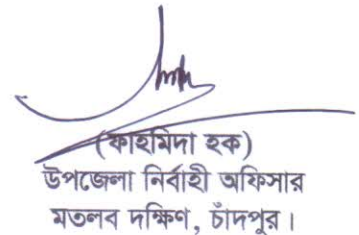 (ফাহমিদা হক)
উপজেলা নির্বাহী অফিসার
মতলব দক্ষিণ, চাঁদপুর।